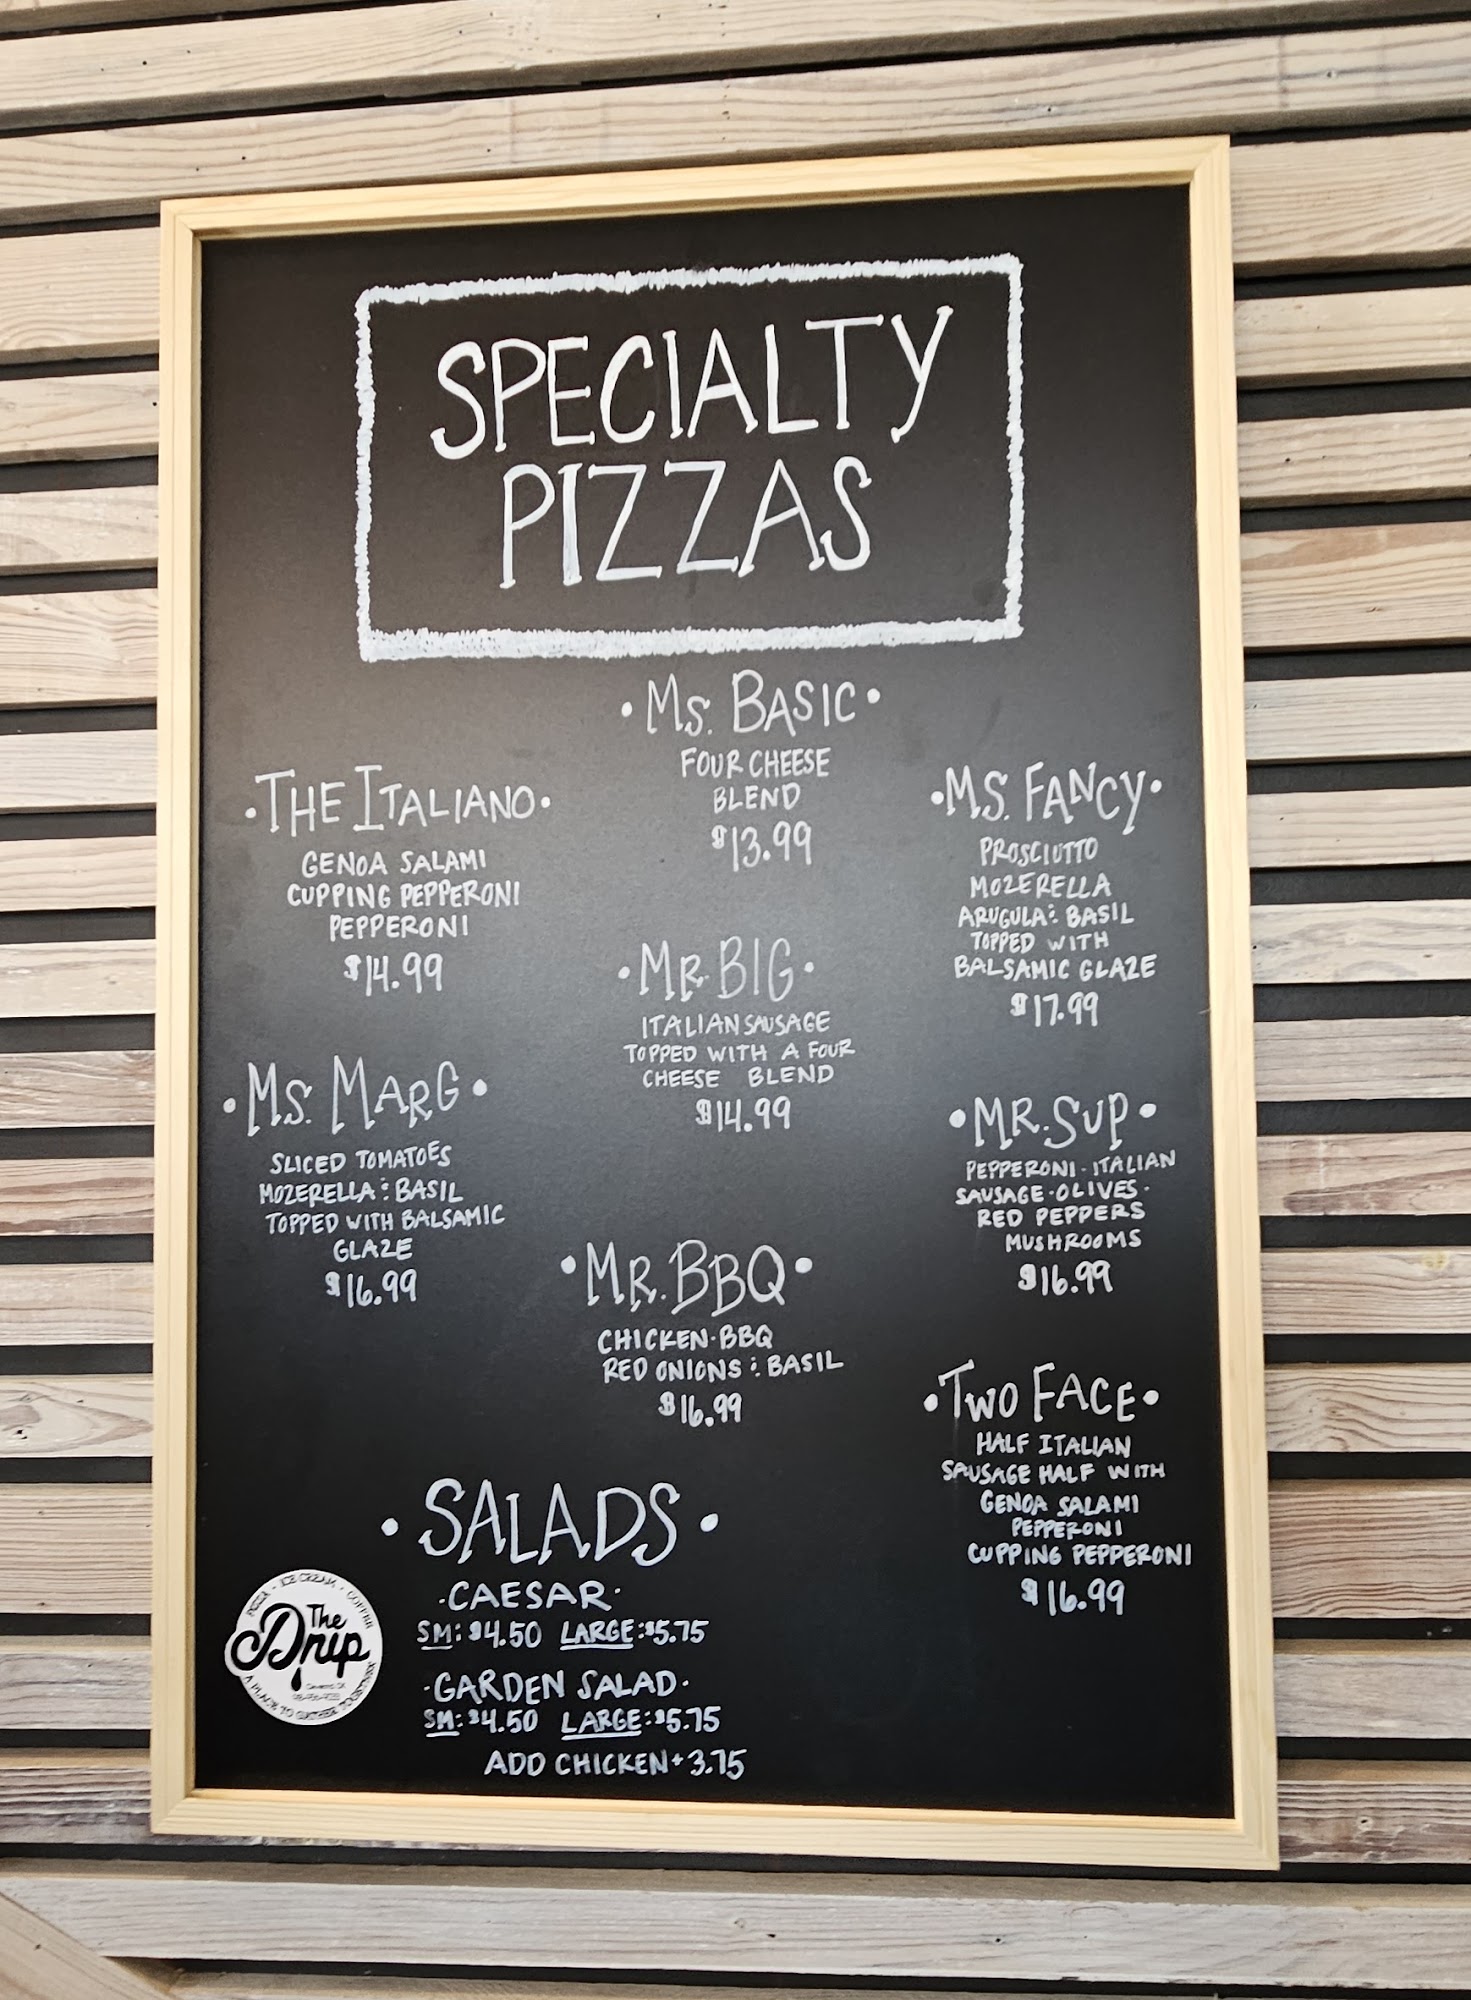 SPECIALTY
PIZZAS
·MS. BASIC·
FOUR CHEESE
BLEND
$13.99
·THE ITALIANO·
GENOA SALAMI
CUPPING PEPPERONI
PEPPERONI
$14.99
·MS. FANCY·
PROSCIUTTO
MOZERELLA
ARUGULA & BASIL
TOPPED WITH
BALSAMIC GLAZE
$17.99
·MR. BIG·
ITALIAN SAUSAGE
TOPPED WITH A FOUR
CHEESE BLEND
$14.99
·MS. MARG·
SLICED TOMATOES
MOZERELLA & BASIL
TOPPED WITH BALSAMIC
GLAZE
$16.99
·MR. SUP·
PEPPERONI · ITALIAN
SAUSAGE · OLIVES ·
RED PEPPERS
MUSHROOMS
$16.99
·MR. BBQ·
CHICKEN · BBQ
RED ONIONS & BASIL
$16.99
·TWO FACE·
HALF ITALIAN
SAUSAGE HALF WITH
GENOA SALAMI
PEPPERONI
CUPPING PEPPERONI
$16.99
·SALADS·
·CAESAR·
SM: $4.50 LARGE: $5.75
·GARDEN SALAD·
SM: $4.50 LARGE: $5.75
ADD CHICKEN + 3.75
PIZZA · ICE CREAM · COFFEE
The
Drip
A PLACE TO GATHER TOGETHER